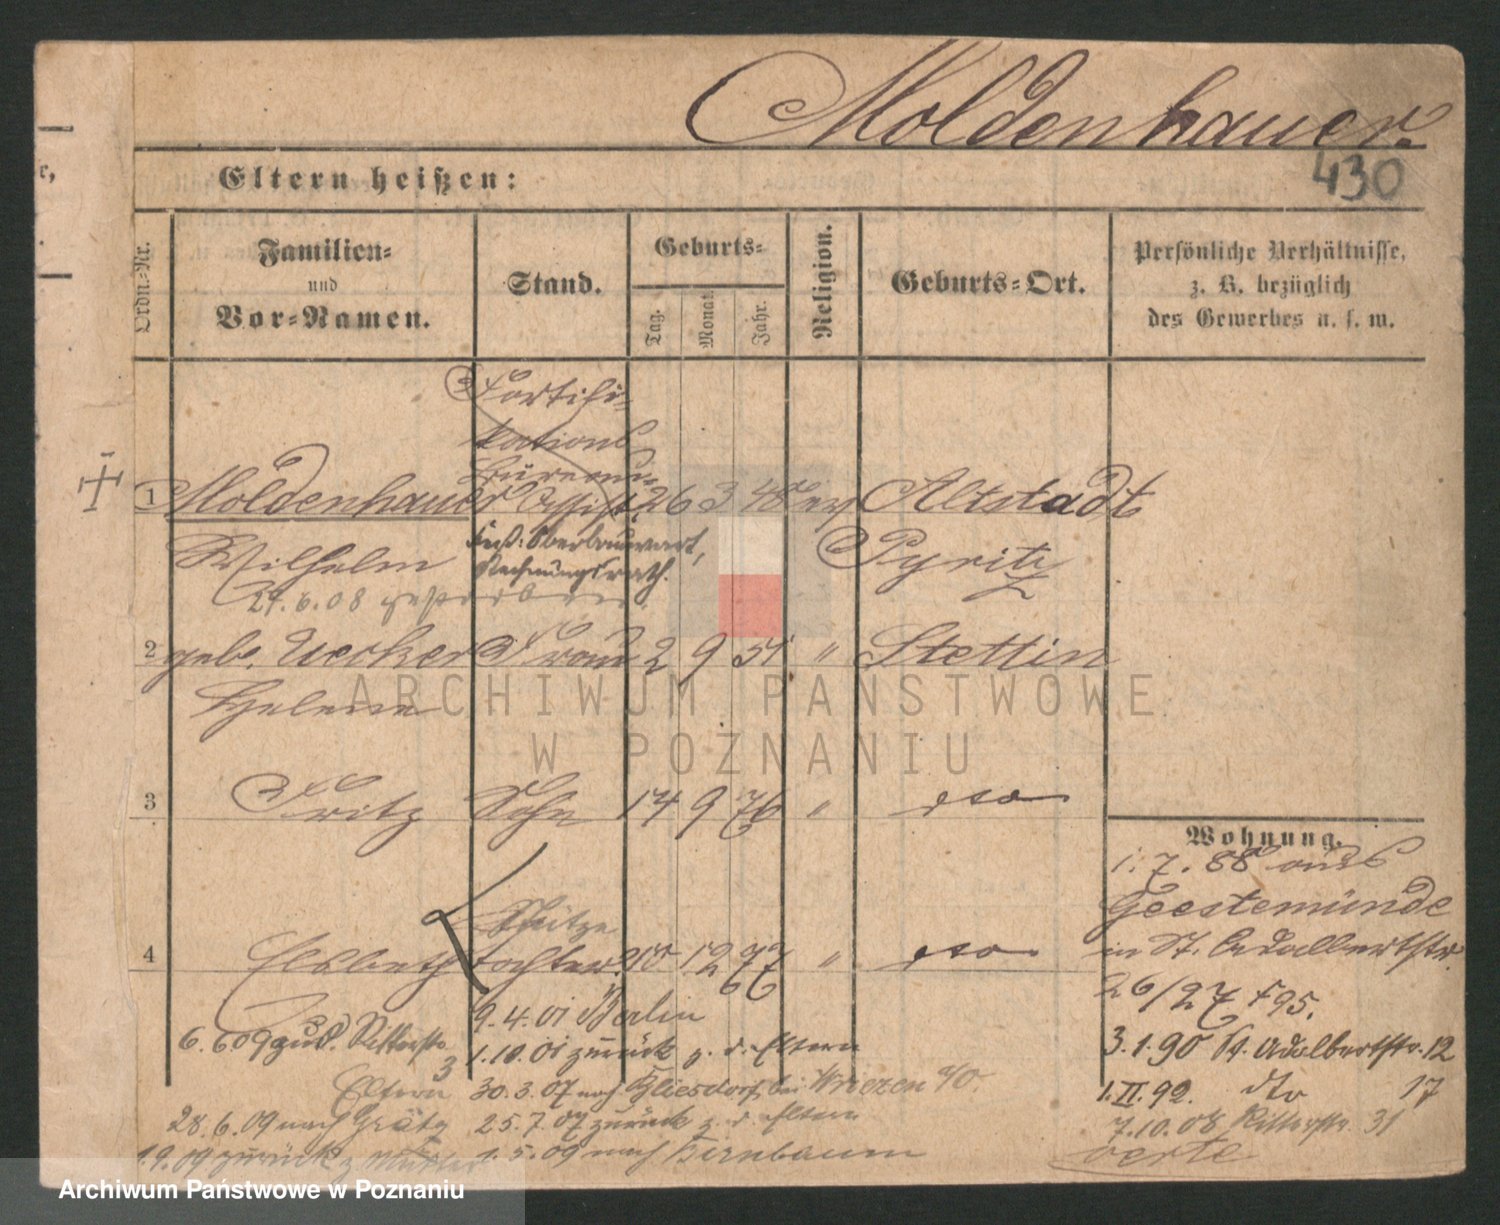 Moldenhauer.
430
Eltern heißen:
Ordn.-Nr.
Familien-
und
Vor-Namen.
Stand.
Geburts-
Tag.
Monat.
Jahr.
Religion.
Geburts-Ort.
Persönliche Verhältnisse,
z. B. bezüglich
des Gewerbes u. s. w.
Fortifi-
kations
Büreau-
1 Moldenhauer Assist. 26 3 48 ev Altstadt
Wilhelm
Oberbauwart, Pyritz
Rechnungsrath.
27.6.08 gestorben.
2 geb. Uecker Frau 2 9 51 " Stettin
Helene
ARCHIWUM PAŃSTWOWE
W POZNANIU
3 Fritz Sohn 14 9 76 " dto
Wohnung.
1.7.88 aus
Geestemünde
in St. Adalbertstr.
26/27 f 95.
3.1.90 St. Adalbertstr. 12
1.II.92. dto 17
7.10.08 Ritterstr. 31
4 Elsbeth tochter. 10 12 77 " dto
9.4.01 Berlin
6.6 09 Ritterstr. 3
1.10.01 zurück z. d. Eltern
Eltern 30.3.07 nach Gliesdorf bei Wriezen a/O.
28.6.09 nach Grätz 25.7.07 zurück z. d. Eltern
1.9.09 zurück z Mutter 1.5.09 nach Birnbaum
Archiwum Państwowe w Poznaniu